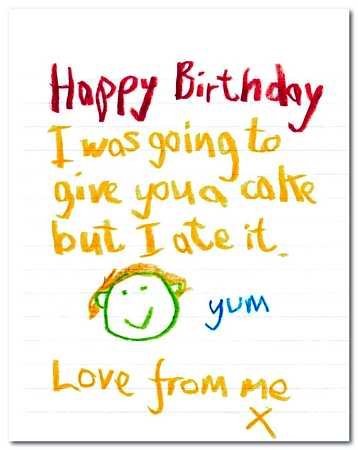 Happy Birthday
I was going to
give you a cake
but I ate it.
yum
Love from me
X